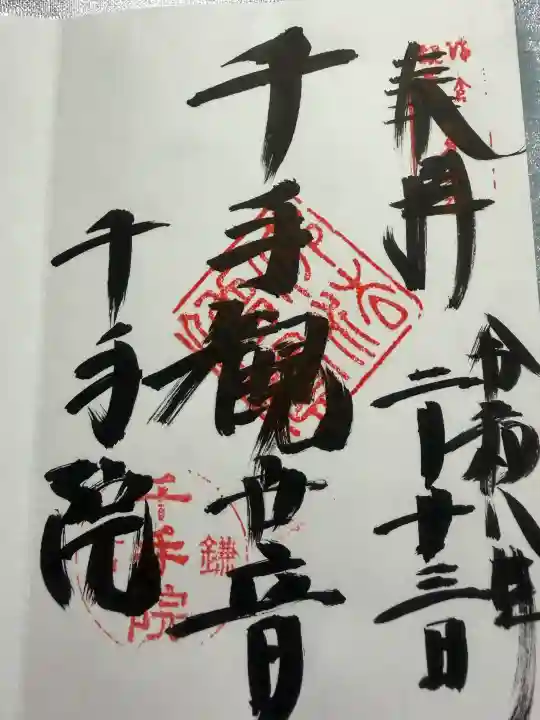 奉拝
令和八年
二月十三日
千手観世音
千手院
鎌
千手院